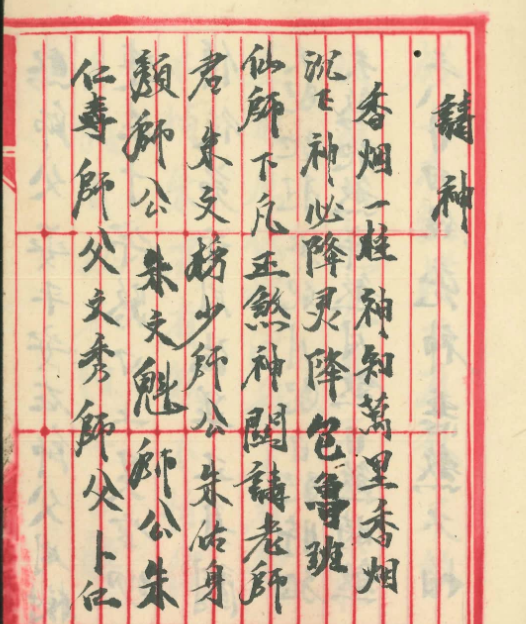 請神
香烟一炷神知萬里香烟
沉七神必降灵降包魯班
仙師下凡正煞神閗請老師
君朱文榜少師公朱佑身
顏師公朱文魁師公朱
仁尋師父文秀師父卜仁